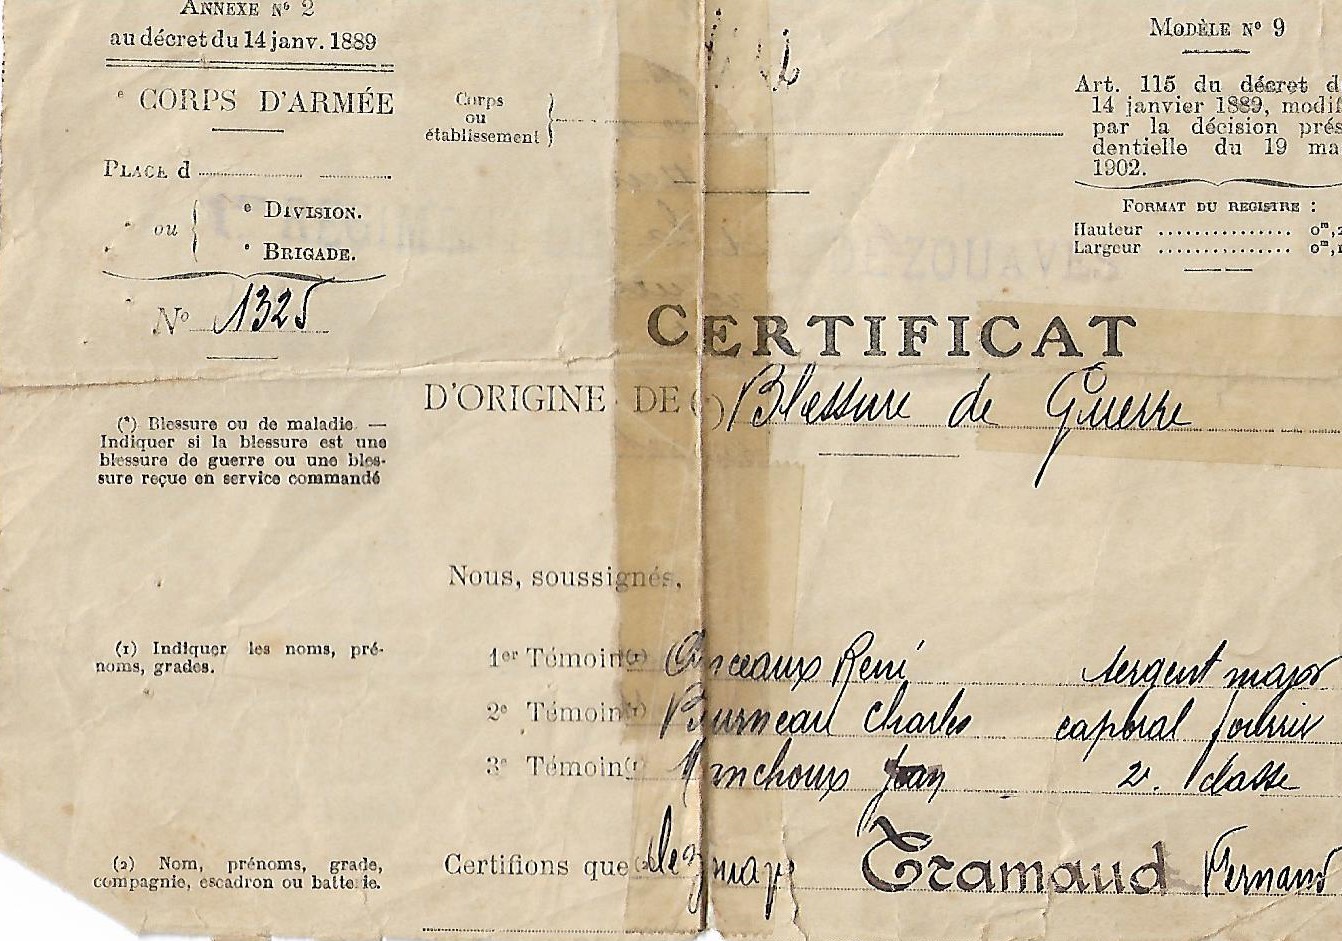 ANNEXE Nº 2
au décret du 14 janv. 1889
e CORPS D'ARMÉE
PLACE d
ou
e DIVISION.
e BRIGADE.
Nº 1325
Corps
ou
établissement
MODÈLE Nº 9
Art. 115 du décret d
14 janvier 1889, modif
par la décision prés
dentielle du 19 ma
1902.
FORMAT DU REGISTRE :
Hauteur ............... 0m,2
Largeur ............... 0m,1
ZOUAVES
CERTIFICAT
D'ORIGINE DE (*) Blessure de Guerre
(*) Blessure ou de maladie. —
Indiquer si la blessure est une
blessure de guerre ou une bles-
sure reçue en service commandé
Nous, soussignés,
(1) Indiquer les noms, pré-
noms, grades.
1er Témoin (1) René sergent major
2e Témoin (1) Charles caporal fourrier
3e Témoin (1) Jean 2e classe
(2) Nom, prénoms, grade,
compagnie, escadron ou batterie.
Certifions que (2) le Tramaud Fernand